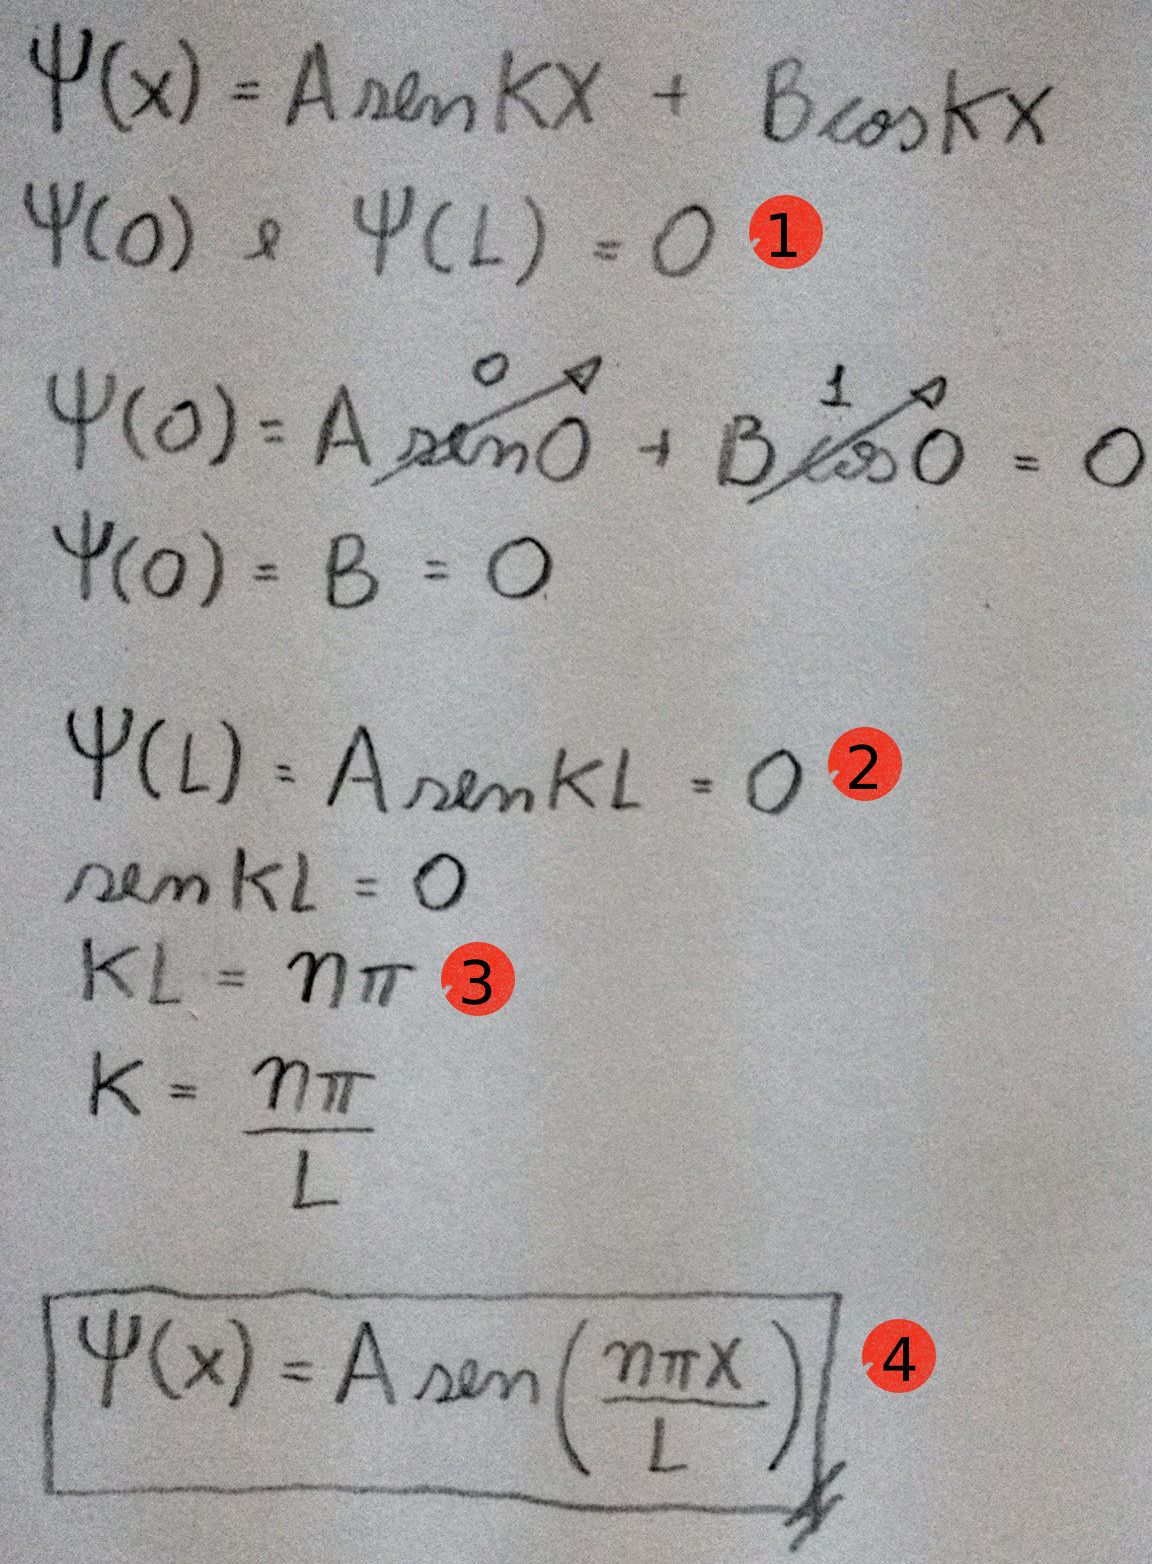 Ψ(x) = A sen KX + B cos KX
Ψ(0) e Ψ(L) = 0 1
0 1
Ψ(0) = A sen 0 + B cos 0 = 0
Ψ(0) = B = 0
Ψ(L) = A sen KL = 0 2
sen KL = 0
KL = nπ 3
K = nπ
L
Ψ(x) = A sen (nπx / L) 4